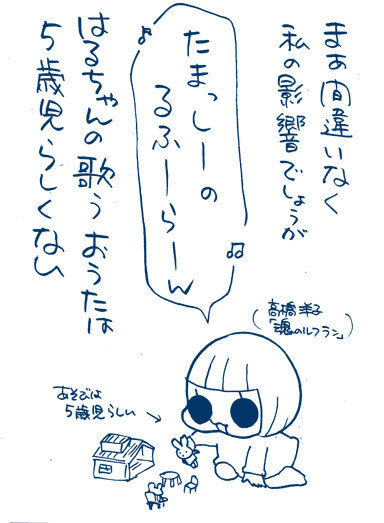 まぁ間違いなく
私の影響でしょうが
たまっしーの
るふーらーん
はるちゃんの歌うおうたは
5歳児らしくない
高橋洋子
「魂のルフラン」
あそびは
5歳児らしい